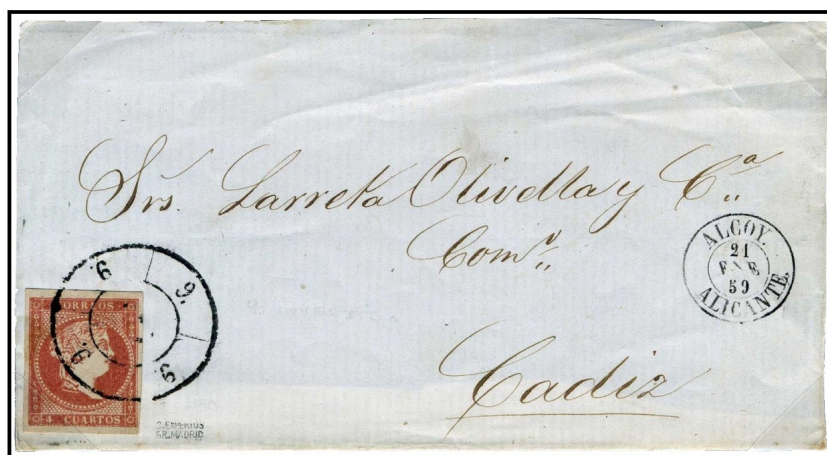 Srs. Larreta Olivella y Cª
Comº
Cadiz
ALCOY.
21
ENE.
59
ALICANTE.
9.
6.
9.
6.
CORREOS
4 CUARTOS
C.EXPERTOS
GR.MADRID